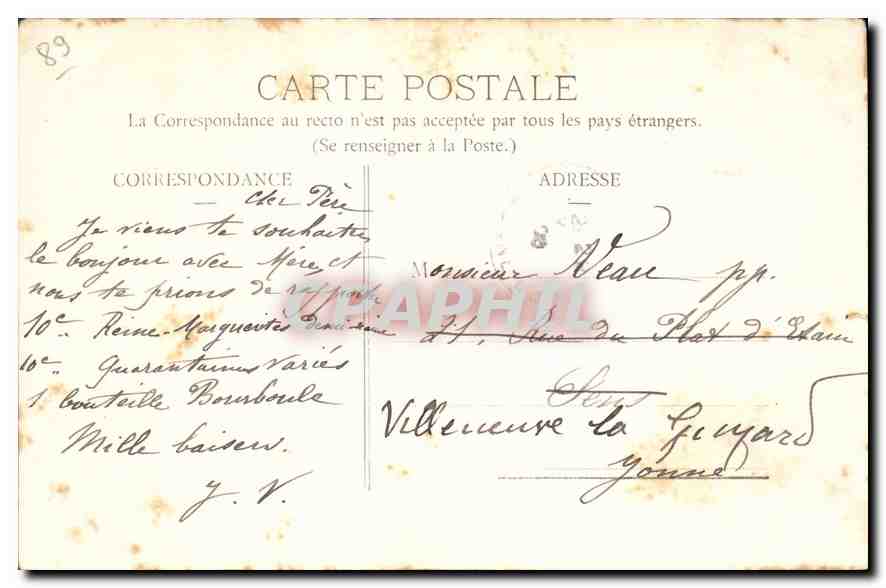 89
CARTE POSTALE
La Correspondance au recto n'est pas acceptée par tous les pays étrangers.
(Se renseigner à la Poste.)
CORRESPONDANCE
Cher Père
Je viens te souhaiter
le bonjour avec Mère, et
nous te prions de rapporter
10c.. Reine-Marguerites demi-naine
10c.. Quarantaines variés
1 bouteille Bourboule
Mille baisers.
J. V.
ADRESSE
Monsieur Veau pp.
21, Rue du Plat d'Etain
Sens
Villeneuve la Guyard
Yonne
CPAPHIL